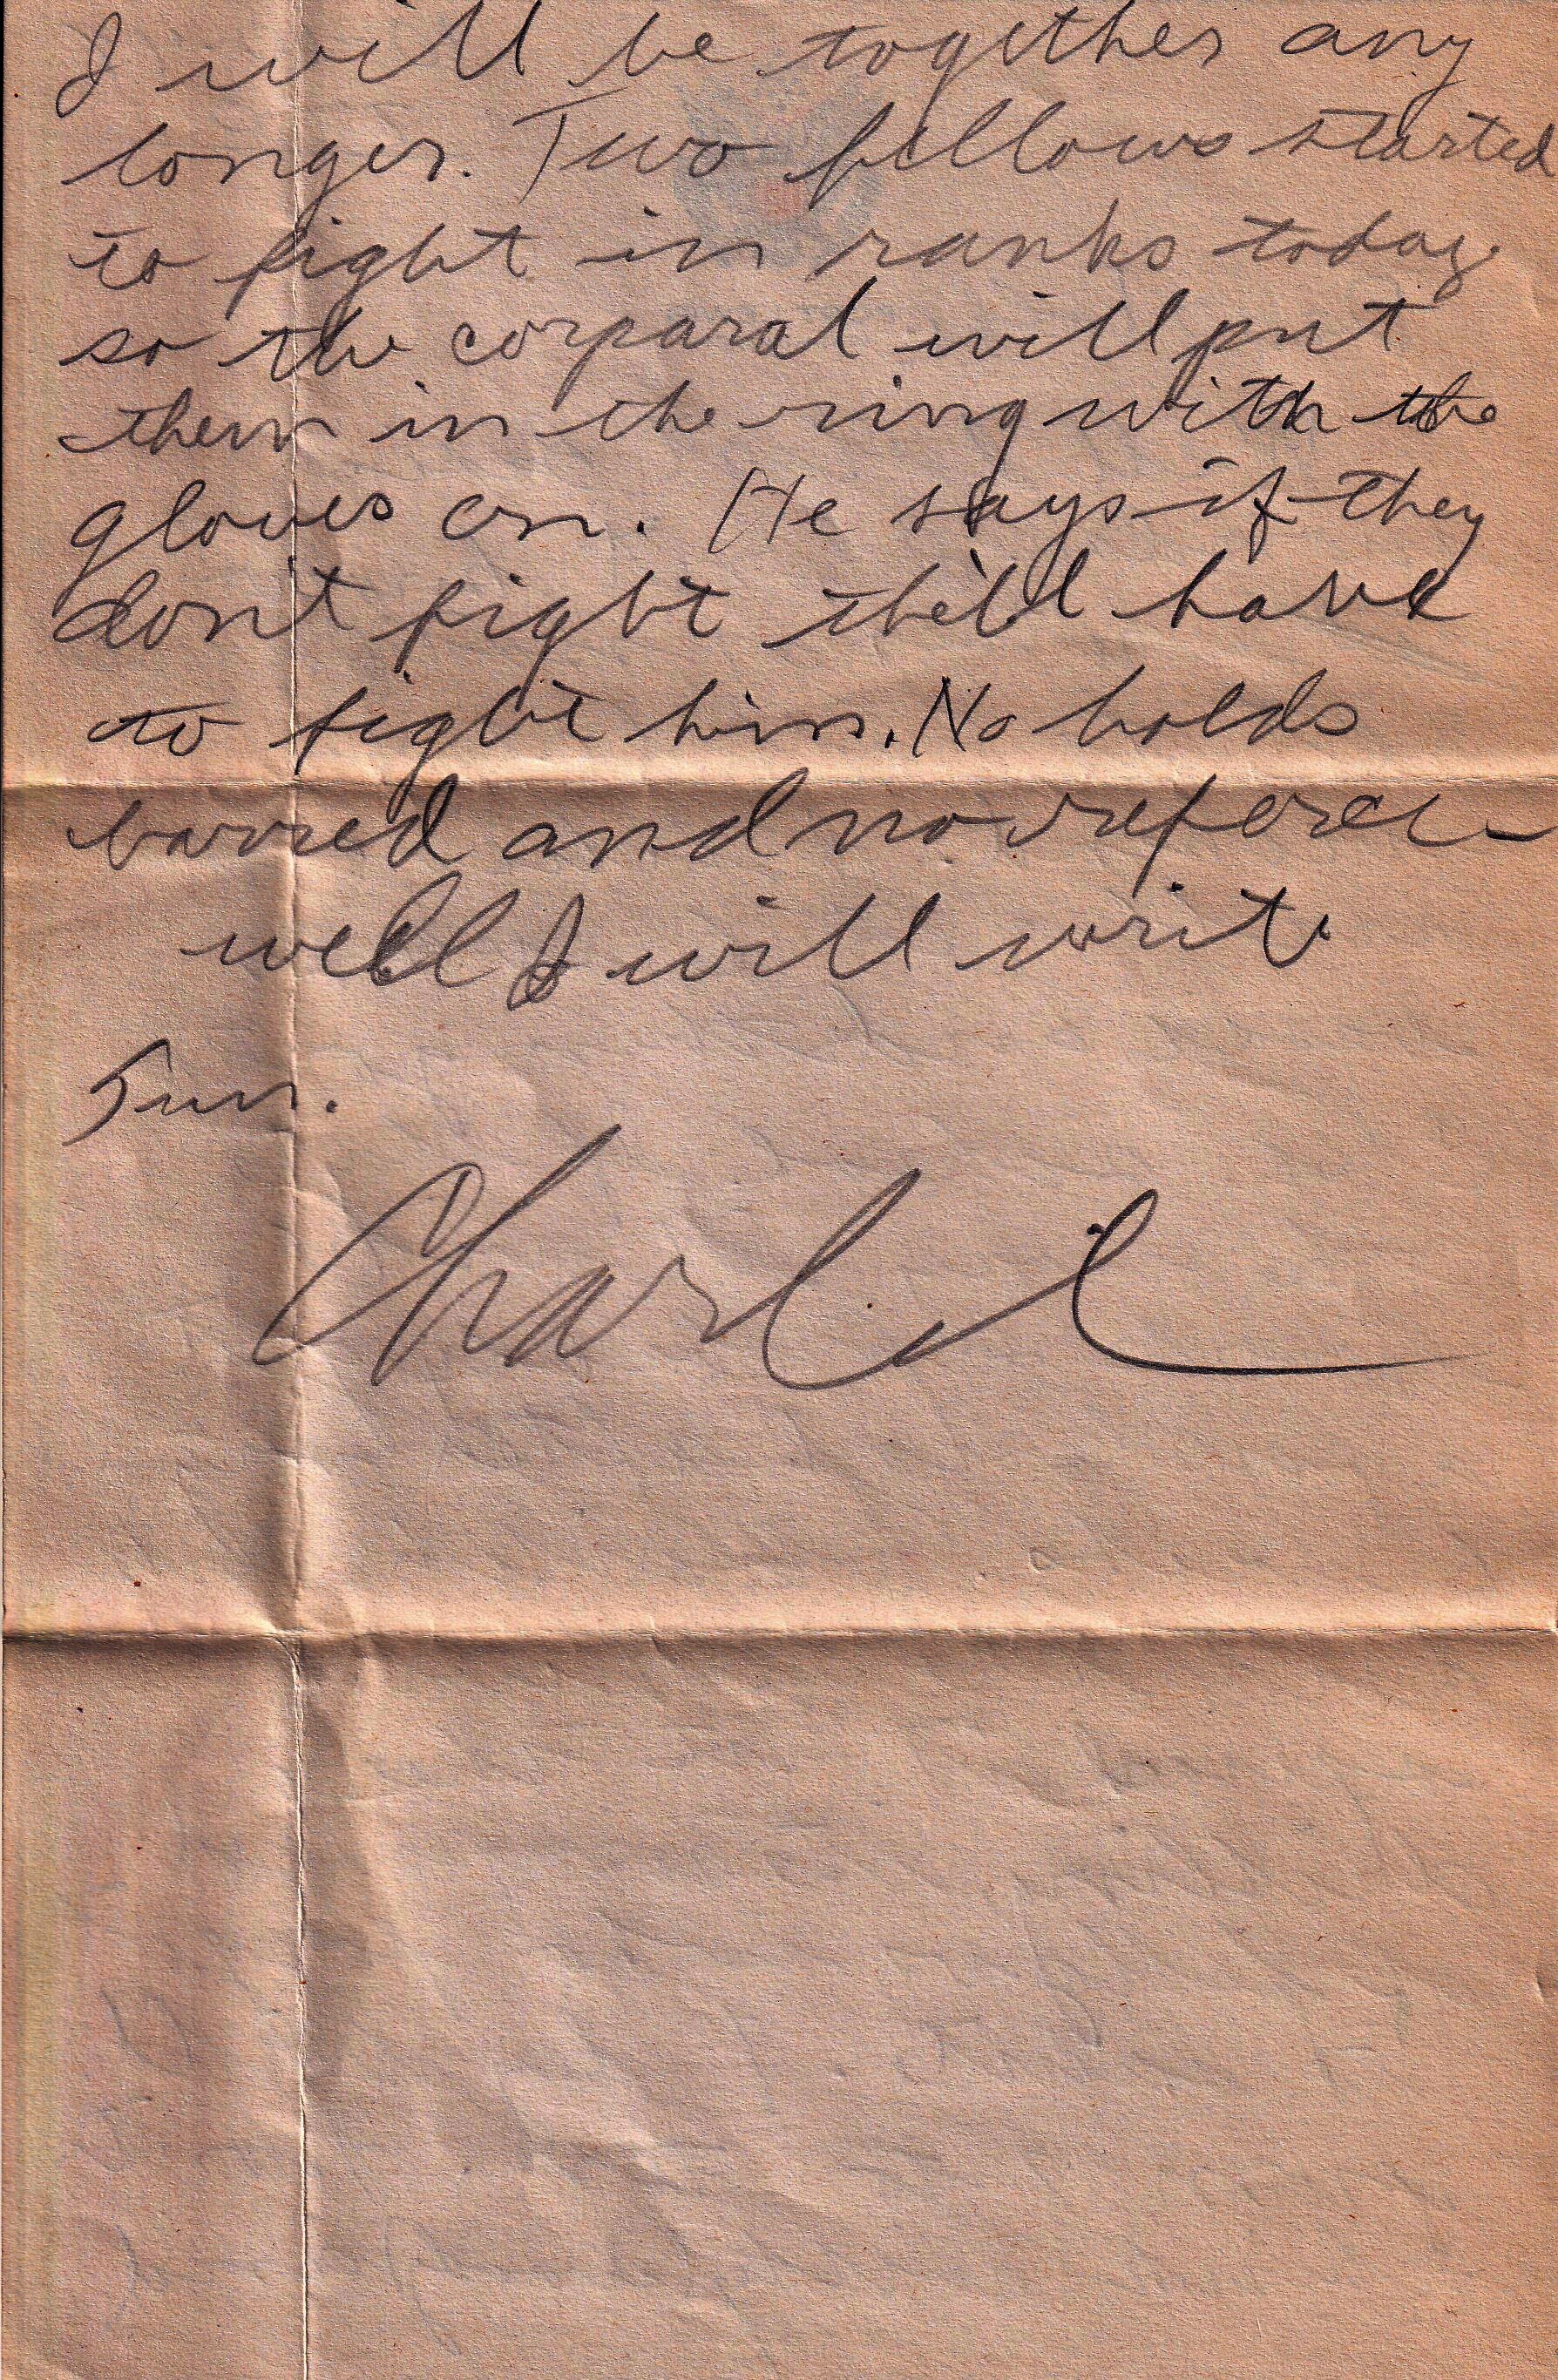 I will be together any
longer. Two fellows started
to fight in ranks today.
so the corparal will put
them in the ring with the
gloves on. He says if they
don't fight the'll have
to fight him. No holds
barred and no referee
well I will write
Sun.
Charlie